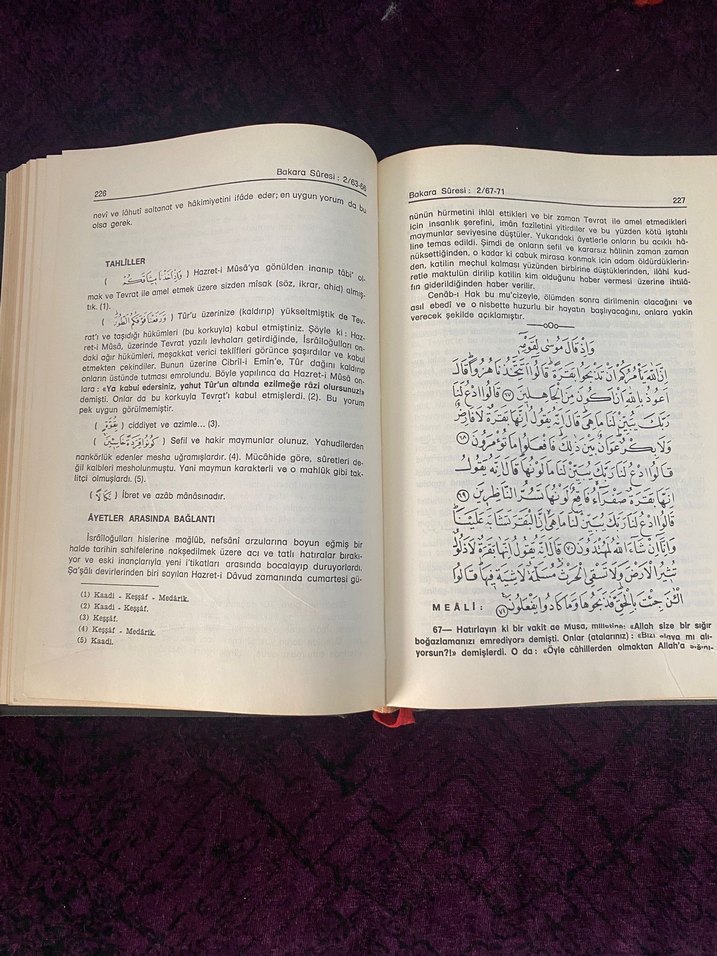 226
Bakara Sûresi : 2/63-66
nevî ve lâhutî saltanat ve hâkimiyetini ifâde eder; en uygun yorum da bu
olsa gerek.
TAHLİLLER
( وَاِذْ اَخَذْنَا مِيثَاقَكُمْ ) Hazret-i Mûsâ'ya gönülden inanıp tâbi' ol-
mak ve Tevrat ile amel etmek üzere sizden mîsak (söz, ikrar, ahid) almış-
tık. (1).
( وَرَفَعْنَا فَوْقَكُمُ الطُّورَ ) Tûr'u üzerinize (kaldırıp) yükseltmiştik de Tev-
rat'ı ve taşıdığı hükümleri (bu korkuyla) kabul etmiştiniz. Şöyle ki : Haz-
ret-i Mûsâ, üzerinde Tevrat yazılı levhaları getirdiğinde, İsrâiloğulları on-
daki ağır hükümleri, meşakkat verici teklifleri görünce şaşırdılar ve kabul
etmekten çekindiler. Bunun üzerine Cibrîl-i Emin'e, Tûr dağını kaldırıp
onların üstünde tutması emrolundu. Böyle yapılınca da Hazret-i Mûsâ on-
lara : «Ya kabul edersiniz, yahut Tûr'un altında ezilmeğe râzı olursunuz!»
demişti. Onlar da bu korkuyla Tevrat'ı kabul etmişlerdi. (2). Bu yorum
pek uygun görülmemiştir.
( بِقُوَّةٍ ) ciddiyet ve azimle... (3).
( كُونُوا قِرَدَةً خَاسِئِينَ ) Sefil ve hakir maymunlar olunuz. Yahudîlerden
nankörlük edenler mesha uğramışlardır. (4). Mücâhide göre, sûretleri de-
ğil kalbleri mesholunmuştu. Yani maymun karakterli ve o mahlûk gibi tak-
litçi olmuşlardı. (5).
( نَكَالًا ) İbret ve azâb mânâsınadır.
ÂYETLER ARASINDA BAĞLANTI
İsrâiloğulları hislerine mağlûb, nefsânî arzularına boyun eğmiş bir
halde tarihin sahifelerine nakşedilmek üzere acı ve tatlı hatıralar bırakı-
yor ve eski inançlarıyla yeni i'tikatları arasında bocalayıp duruyorlardı.
Şa'şâlı devirlerinden biri sayılan Hazret-i Dâvud zamanında cumartesi gü-
(1) Kaadî - Keşşâf - Medârik.
(2) Kaadî - Keşşâf.
(3) Keşşâf.
(4) Keşşâf - Medârik.
(5) Kaadî.
Bakara Sûresi : 2/67-71
227
nünün hürmetini ihlâl ettikleri ve bir zaman Tevrat ile amel etmedikleri
için insanlık şerefini, imân faziletini yitirdiler ve bu yüzden kötü iştahlı
maymunlar seviyesine düştüler. Yukarıdaki âyetlerle onların bu acıklı hâ-
line temas edildi. Şimdi de onların sefil ve kararsız hâlinin zaman zaman
nüksettiğinden, o kadar ki çabuk mirasa konmak için adam öldürdüklerin-
den, katilin mechul kalması yüzünden birbirine düştüklerinden, ilâhî kud-
retle maktulün dirilip katilin kim olduğunu haber vermesi üzerine ihtilâ-
fın giderildiğinden haber verilir.
Cenâb-ı Hak bu mu'cizeyle, ölümden sonra dirilmenin olacağını ve
asıl ebedî ve o nisbette huzurlu bir hayatın başlıyacağını, onlara yakîn
verecek şekilde açıklamıştır.
وَاِذْ قَالَ مُوسٰى لِقَوْمِهٖٓ
اِنَّ اللّٰهَ يَأْمُرُكُمْ اَنْ تَذْبَحُوا بَقَرَةً قَالُٓوا اَتَتَّخِذُنَا هُزُوًا قَالَ
اَعُوذُ بِاللّٰهِ اَنْ اَكُونَ مِنَ الْجَاهِلٖينَ ﴿٦٧﴾ قَالُوا ادْعُ لَنَا
رَبَّكَ يُبَيِّنْ لَنَا مَا هِيَ قَالَ اِنَّهُ يَقُولُ اِنَّهَا بَقَرَةٌ لَا فَارِضٌ
وَلَا بِكْرٌ عَوَانٌ بَيْنَ ذٰلِكَ فَافْعَلُوا مَا تُؤْمَرُونَ ﴿٦٨﴾
قَالُوا ادْعُ لَنَا رَبَّكَ يُبَيِّنْ لَنَا مَا لَوْنُهَا قَالَ اِنَّهُ يَقُولُ
اِنَّهَا بَقَرَةٌ صَفْرَٓاءُ فَاقِعٌ لَوْنُهَا تَسُرُّ النَّاظِرٖينَ ﴿٦٩﴾
قَالُوا ادْعُ لَنَا رَبَّكَ يُبَيِّنْ لَنَا مَا هِيَ اِنَّ الْبَقَرَ تَشَابَهَ عَلَيْنَا
وَاِنَّٓا اِنْ شَٓاءَ اللّٰهُ لَمُهْتَدُونَ ﴿٧٠﴾ قَالَ اِنَّهُ يَقُولُ اِنَّهَا بَقَرَةٌ لَا ذَلُولٌ
تُثٖيرُ الْاَرْضَ وَلَا تَسْقِي الْحَرْثَ مُسَلَّمَةٌ لَا شِيَةَ فٖيهَا قَالُوا
الْـٰٔنَ جِئْتَ بِالْحَقِّ فَذَبَحُوهَا وَمَا كَادُوا يَفْعَلُونَ ﴿٧١﴾
MEÂLİ :
67— Hatırlayın ki bir vakit de Musa, milletine: «Allah size bir sığır
boğazlamanızı emrediyor» demişti. Onlar (atalarınız) : «Bizi alaya mı alı-
yorsun?!» demişlerdi. O da : «Öyle câhillerden olmaktan Allah'a